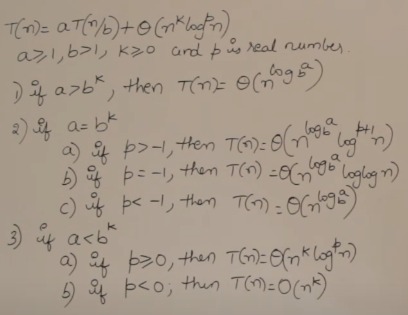 T(n) = aT(n/b) + Θ(n^k log^p n)
a≥1, b>1, k≥0 and p is real number.
1) if a>b^k, then T(n) = Θ(n^log_b^a)
2) if a=b^k
a) if p>-1, then T(n)=Θ(n^log_b^a log^p+1 n)
b) if p=-1, then T(n) =Θ(n^log_b^a loglogn)
c) if p<-1, then T(n) =Θ(n^log_b^a)
3) if a<b^k
a) if p≥0, then T(n)=Θ(n^k log^p n)
b) if p<0; then T(n)=O(n^k)